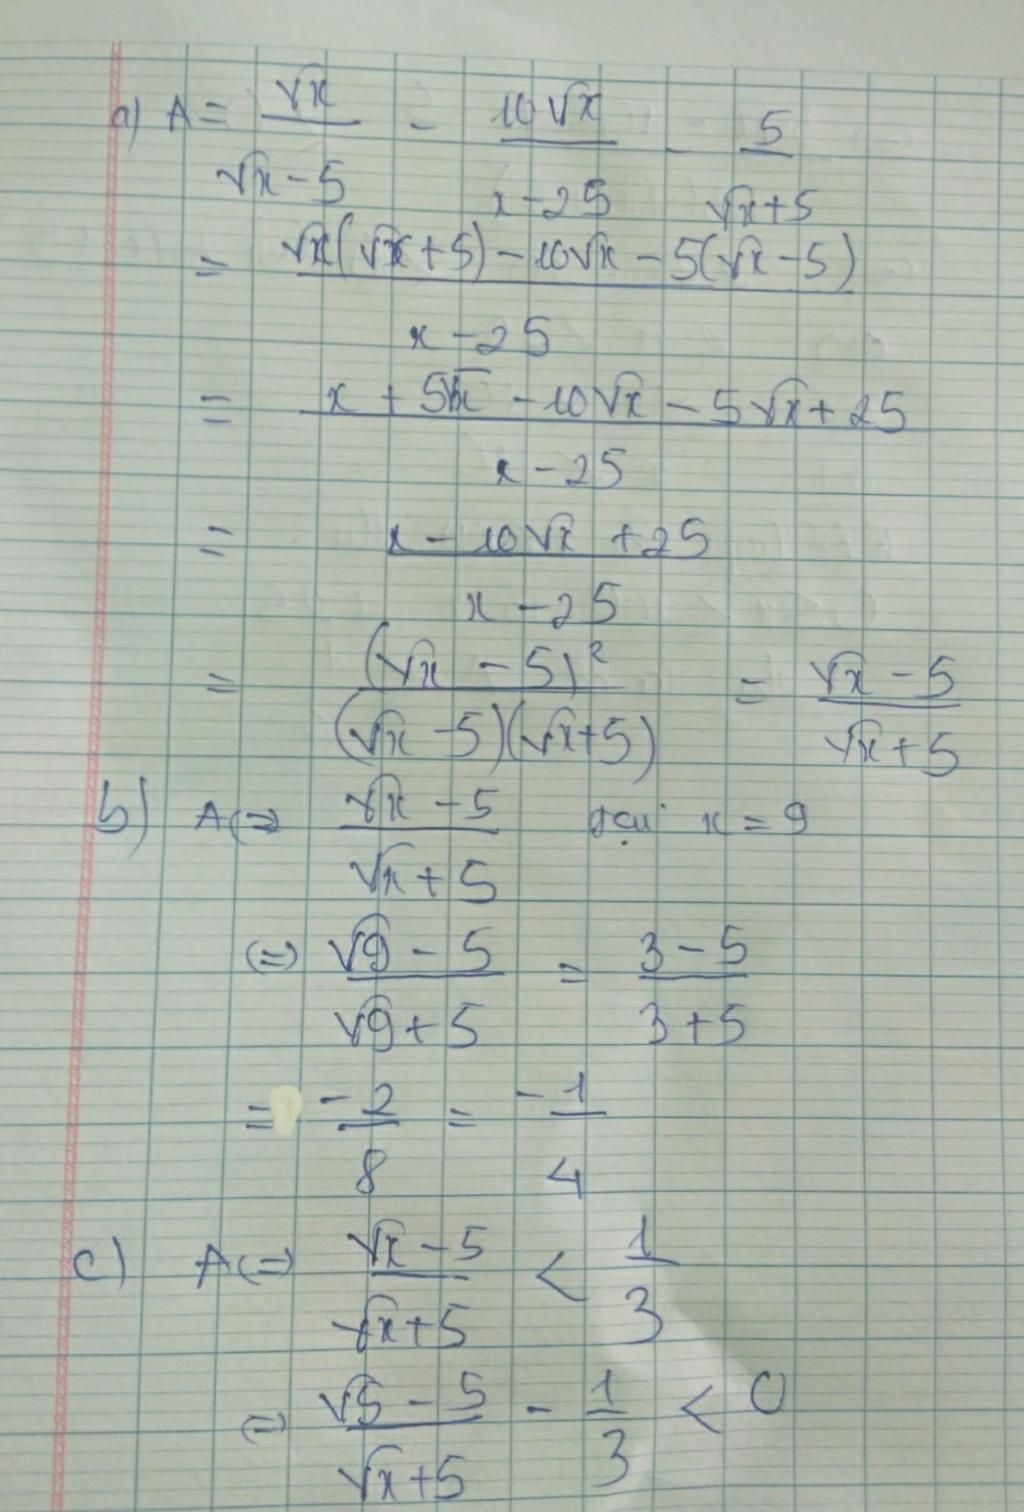 a) A = √x / (√x - 5) - 10√x / (x - 25) - 5 / (√x + 5)
= (√x(√x + 5) - 10√x - 5(√x - 5)) / (x - 25)
= (x + 5√x - 10√x - 5√x + 25) / (x - 25)
= (x - 10√x + 25) / (x - 25)
= (√x - 5)² / ((√x - 5)(√x + 5)) = (√x - 5) / (√x + 5)
b) A (=> (√x - 5) / (√x + 5) tại x = 9
(=) (√9 - 5) / (√9 + 5) = (3 - 5) / (3 + 5)
= -2 / 8 = -1 / 4
c) A (=) (√x - 5) / (√x + 5) < 1 / 3
(=) (√5 - 5) / (√x + 5) - 1 / 3 < 0